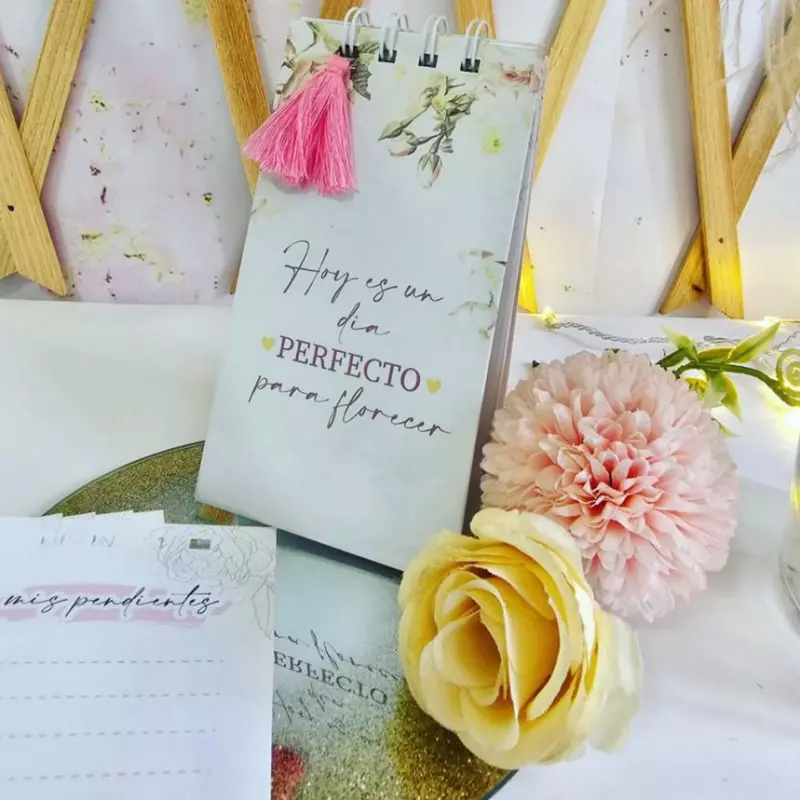 Hoy es un
dia
PERFECTO
para florecer
mis pendientes
PERFECTO